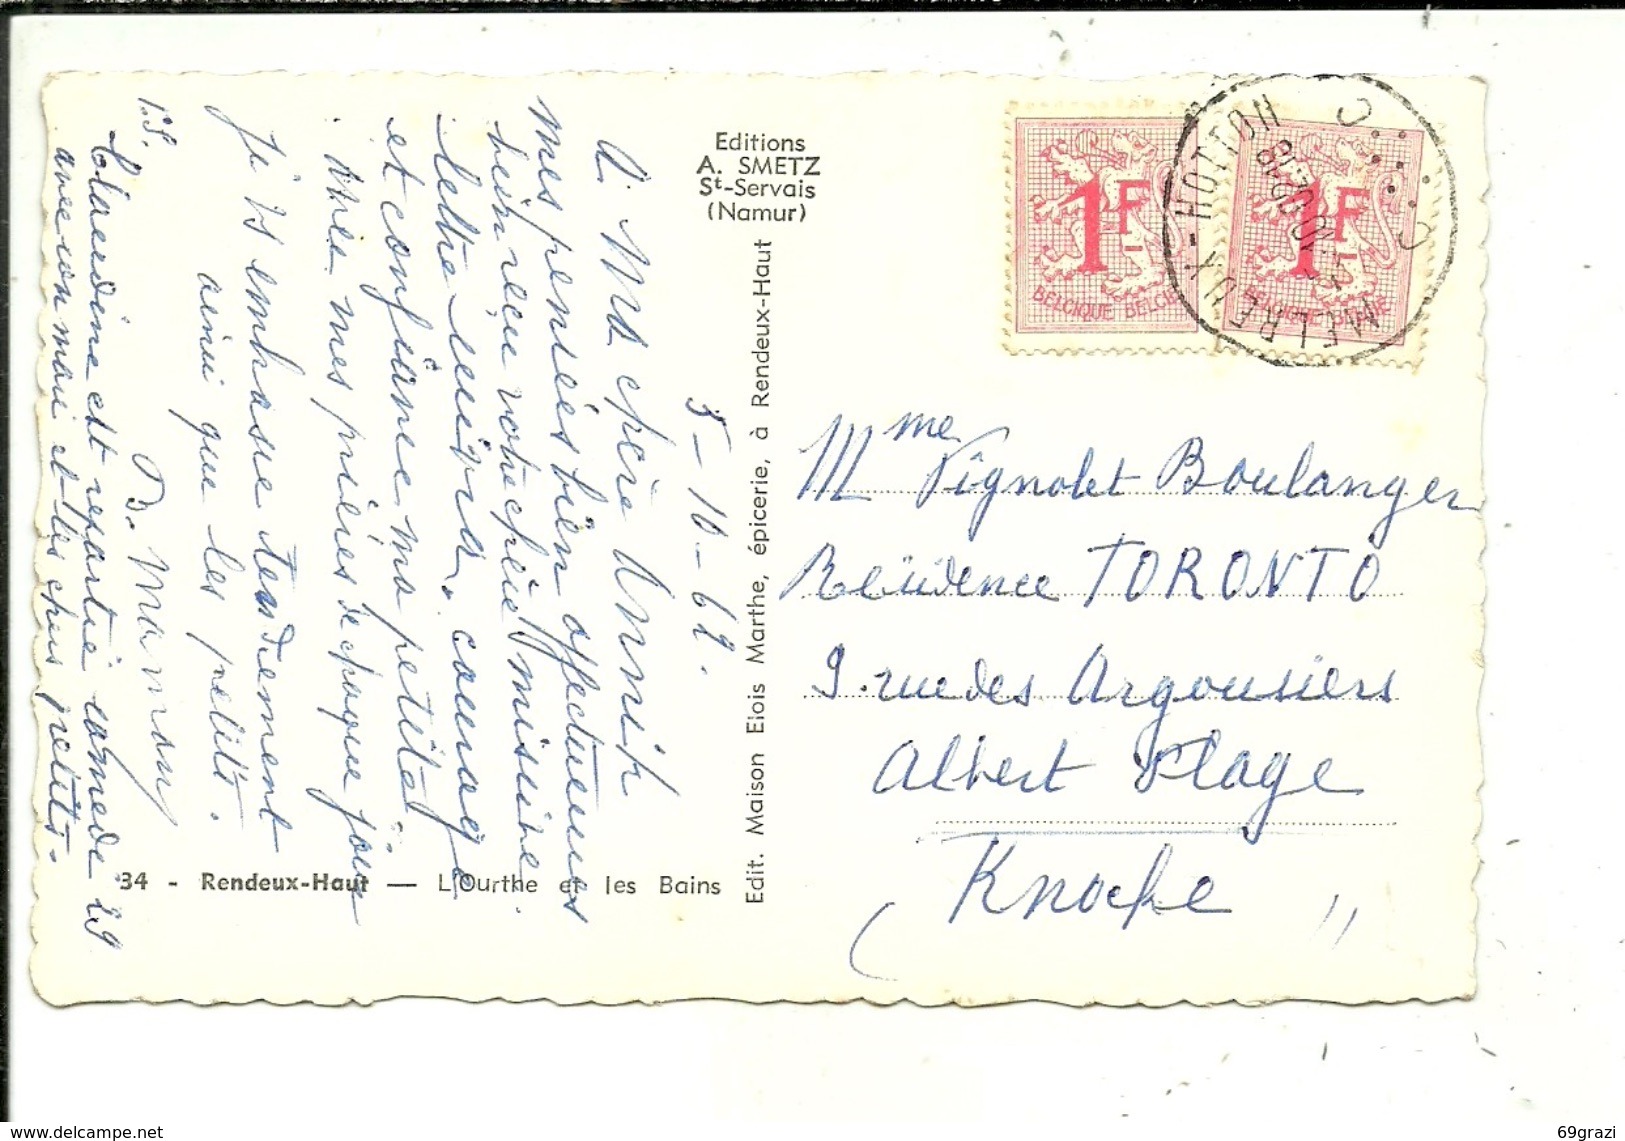 Editions
A. SMETZ
St-Servais
(Namur)
5-10-62.
A Ma chère Annick
mes pensées bien affectueuses
bien reçu votre chère missive
lettre suivra. courage
et confiance ma petite
mes prières de chaque jour
Je vs embrasse tendrement
ainsi que les petits.
B. Maman
P.S.
Claudine est repartie samedi 29
avec son mari et les chers petits.
34 - Rendeux-Haut — L'Ourthe et les Bains
Edit. Maison Elois Marthe, épicerie, à Rendeux-Haut
1F
BELGIQUE BELGIE
1F
BELGIQUE BELGIE
MELREUX-HOTTON
Mme Vignolet Boulanger
Résidence TORONTO
9. rue des Argousiers
Albert Plage
Knocke
www.delcampe.net
69grazi